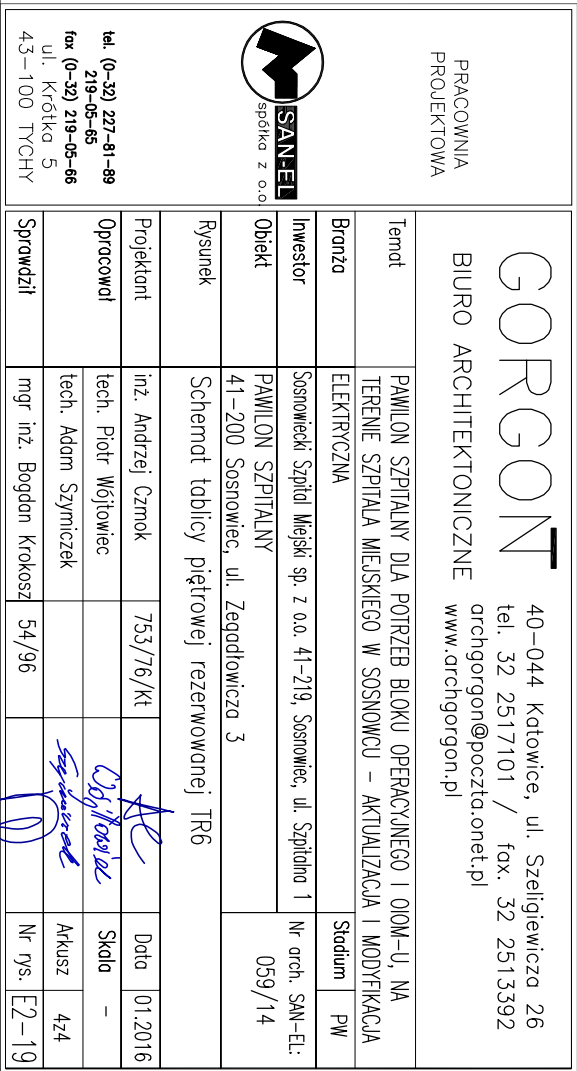 PRACOWNIA
PROJEKTOWA
SAN-EL
spółka z o.o.
tel. (0-32) 227-81-89
219-05-65
fax (0-32) 219-05-66
ul. Krótka 5
43-100 TYCHY
GORGON
BIURO ARCHITEKTONICZNE
40-044 Katowice, ul. Szeligiewicza 26
tel. 32 2517101 / fax. 32 2513392
archgorgon@poczta.onet.pl
www.archgorgon.pl
Temat
PAWILON SZPITALNY DLA POTRZEB BLOKU OPERACYJNEGO I OIOM-U, NA
TERENIE SZPITALA MIEJSKIEGO W SOSNOWCU - AKTUALIZACJA I MODYFIKACJA
Branża ELEKTRYCZNA Stadium PW
Inwestor Sosnowiecki Szpital Miejski sp. z o.o. 41-219, Sosnowiec, ul. Szpitalna 1
Nr arch. SAN-EL:
059/14
Obiekt PAWILON SZPITALNY
41-200 Sosnowiec, ul. Zegadłowicza 3
Rysunek Schemat tablicy piętrowej rezerwowanej TR6
Projektant inż. Andrzej Czmok 753/76/Kt Data 01.2016
Opracował tech. Piotr Wójtowiec Wójtowiec Skala -
tech. Adam Szymiczek Szymiczek Arkusz 4z4
Sprawdził mgr inż. Bogdan Krokosz 54/96 Nr rys. E2-19